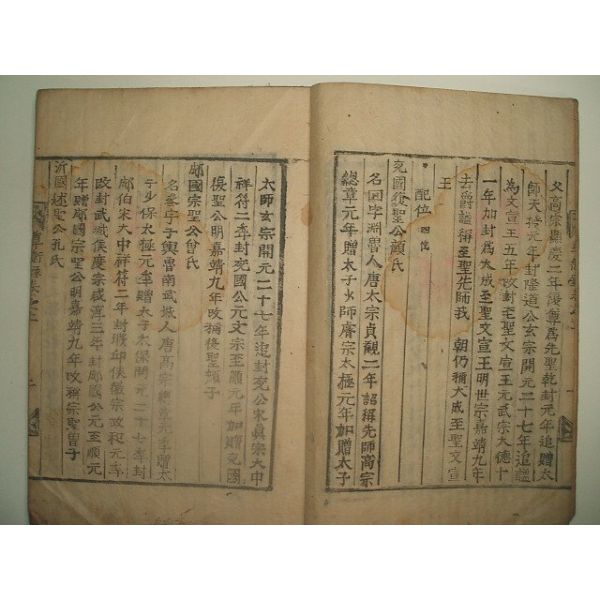 父高宗顯慶二年復尊爲先聖乾封元年追贈太
師天授元年封隆道公玄宗開元二十七年追諡
爲文宣王五年改封至聖文宣王元武宗大德十
一年加封爲大成至聖文宣王明世宗嘉靖九年
去爵諡稱至聖先師我 朝仍稱大成至聖文宣
王
配位 四位
兗國復聖公顔氏
名回字淵魯人唐太宗貞觀二年詔稱先師高宗
總章元年贈太子少師睿宗太極元年加贈太子
太師玄宗開元二十七年追封兗公宋眞宗大中
祥符二年封兗國公元文宗至順元年加贈兗國
復聖公明嘉靖九年改稱復聖顔子
郕國宗聖公曾氏
名參字子輿魯南武城人唐高宗總章元年贈太
子少保太極元年贈太子太保開元二十七年封
郕伯宋大中祥符二年封瑕丘侯徽宗政和元年
改封武城侯度宗咸淳三年封郕國公元至順元
年贈郕國宗聖公明嘉靖九年改稱宗聖曾子
沂國述聖公孔氏